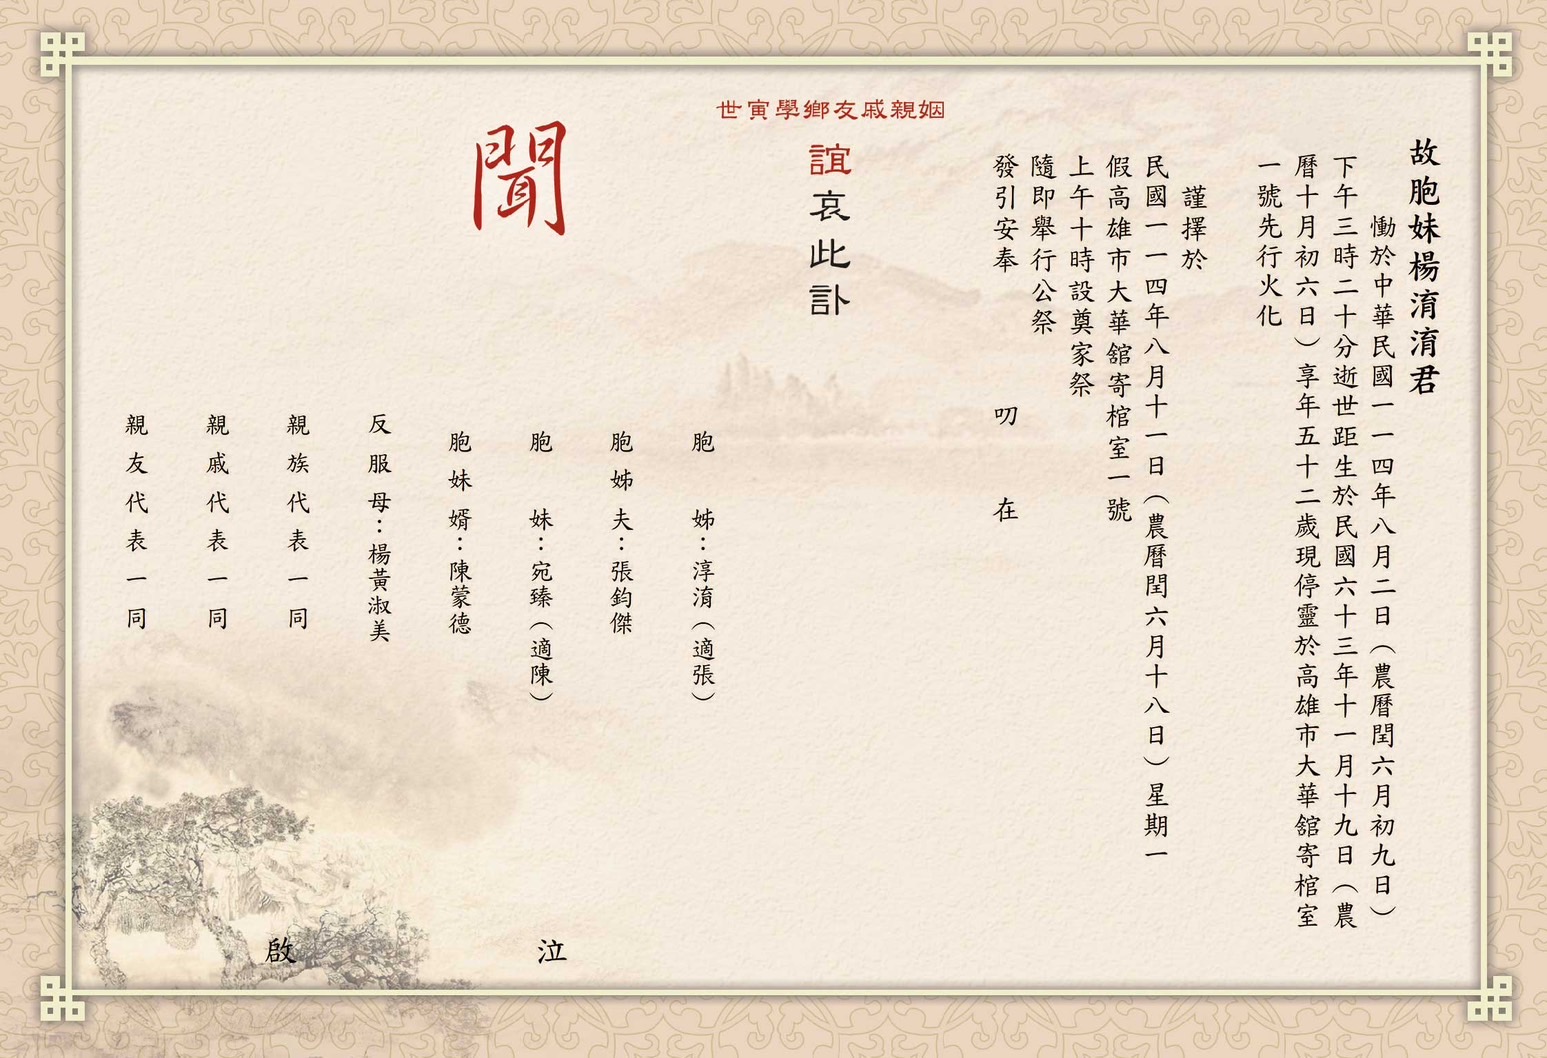 故胞妹楊淯淯君
慟於中華民國一一四年八月二日（農曆閏六月初九日）
下午三時二十分逝世距生於民國六十三年十一月十九日（農
曆十月初六日）享年五十二歲現停靈於高雄市大華舘寄棺室
一號先行火化
謹擇於
民國一一四年八月十一日（農曆閏六月十八日）星期一
假高雄市大華舘寄棺室一號
上午十時設奠家祭
隨即舉行公祭
發引安奉 叨在
姻親戚友鄉學寅世
誼哀此訃
聞
胞姊：淳淯（適張）
胞姊夫：張鈞傑
胞妹：宛臻（適陳）
胞妹婿：陳蒙德
反服母：楊黃淑美
親族代表一同
親戚代表一同
親友代表一同
泣啟